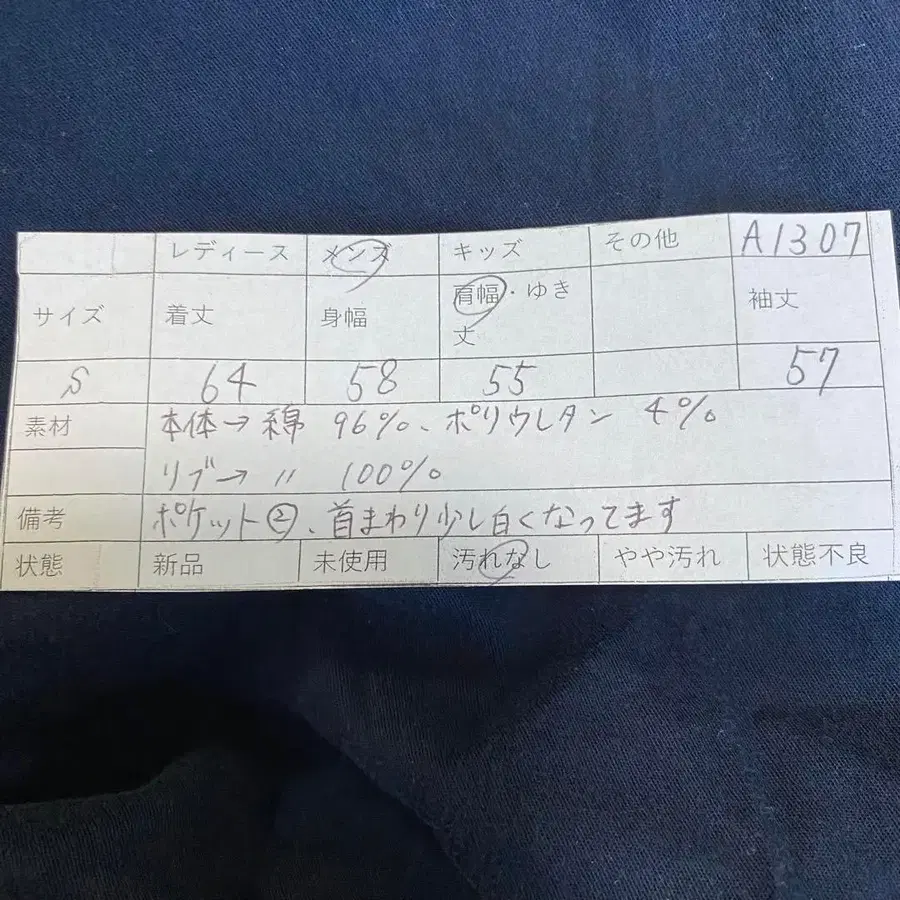 レディース メンズ キッズ その他 A1307
サイズ 着丈 身幅 肩幅・ゆき丈 袖丈
S 64 58 55 57
素材 本体→綿 96%、ポリウレタン 4%
リブ→ 〃 100%
備考 ポケット②、首まわり少し白くなってます
状態 新品 未使用 汚れなし やや汚れ 状態不良